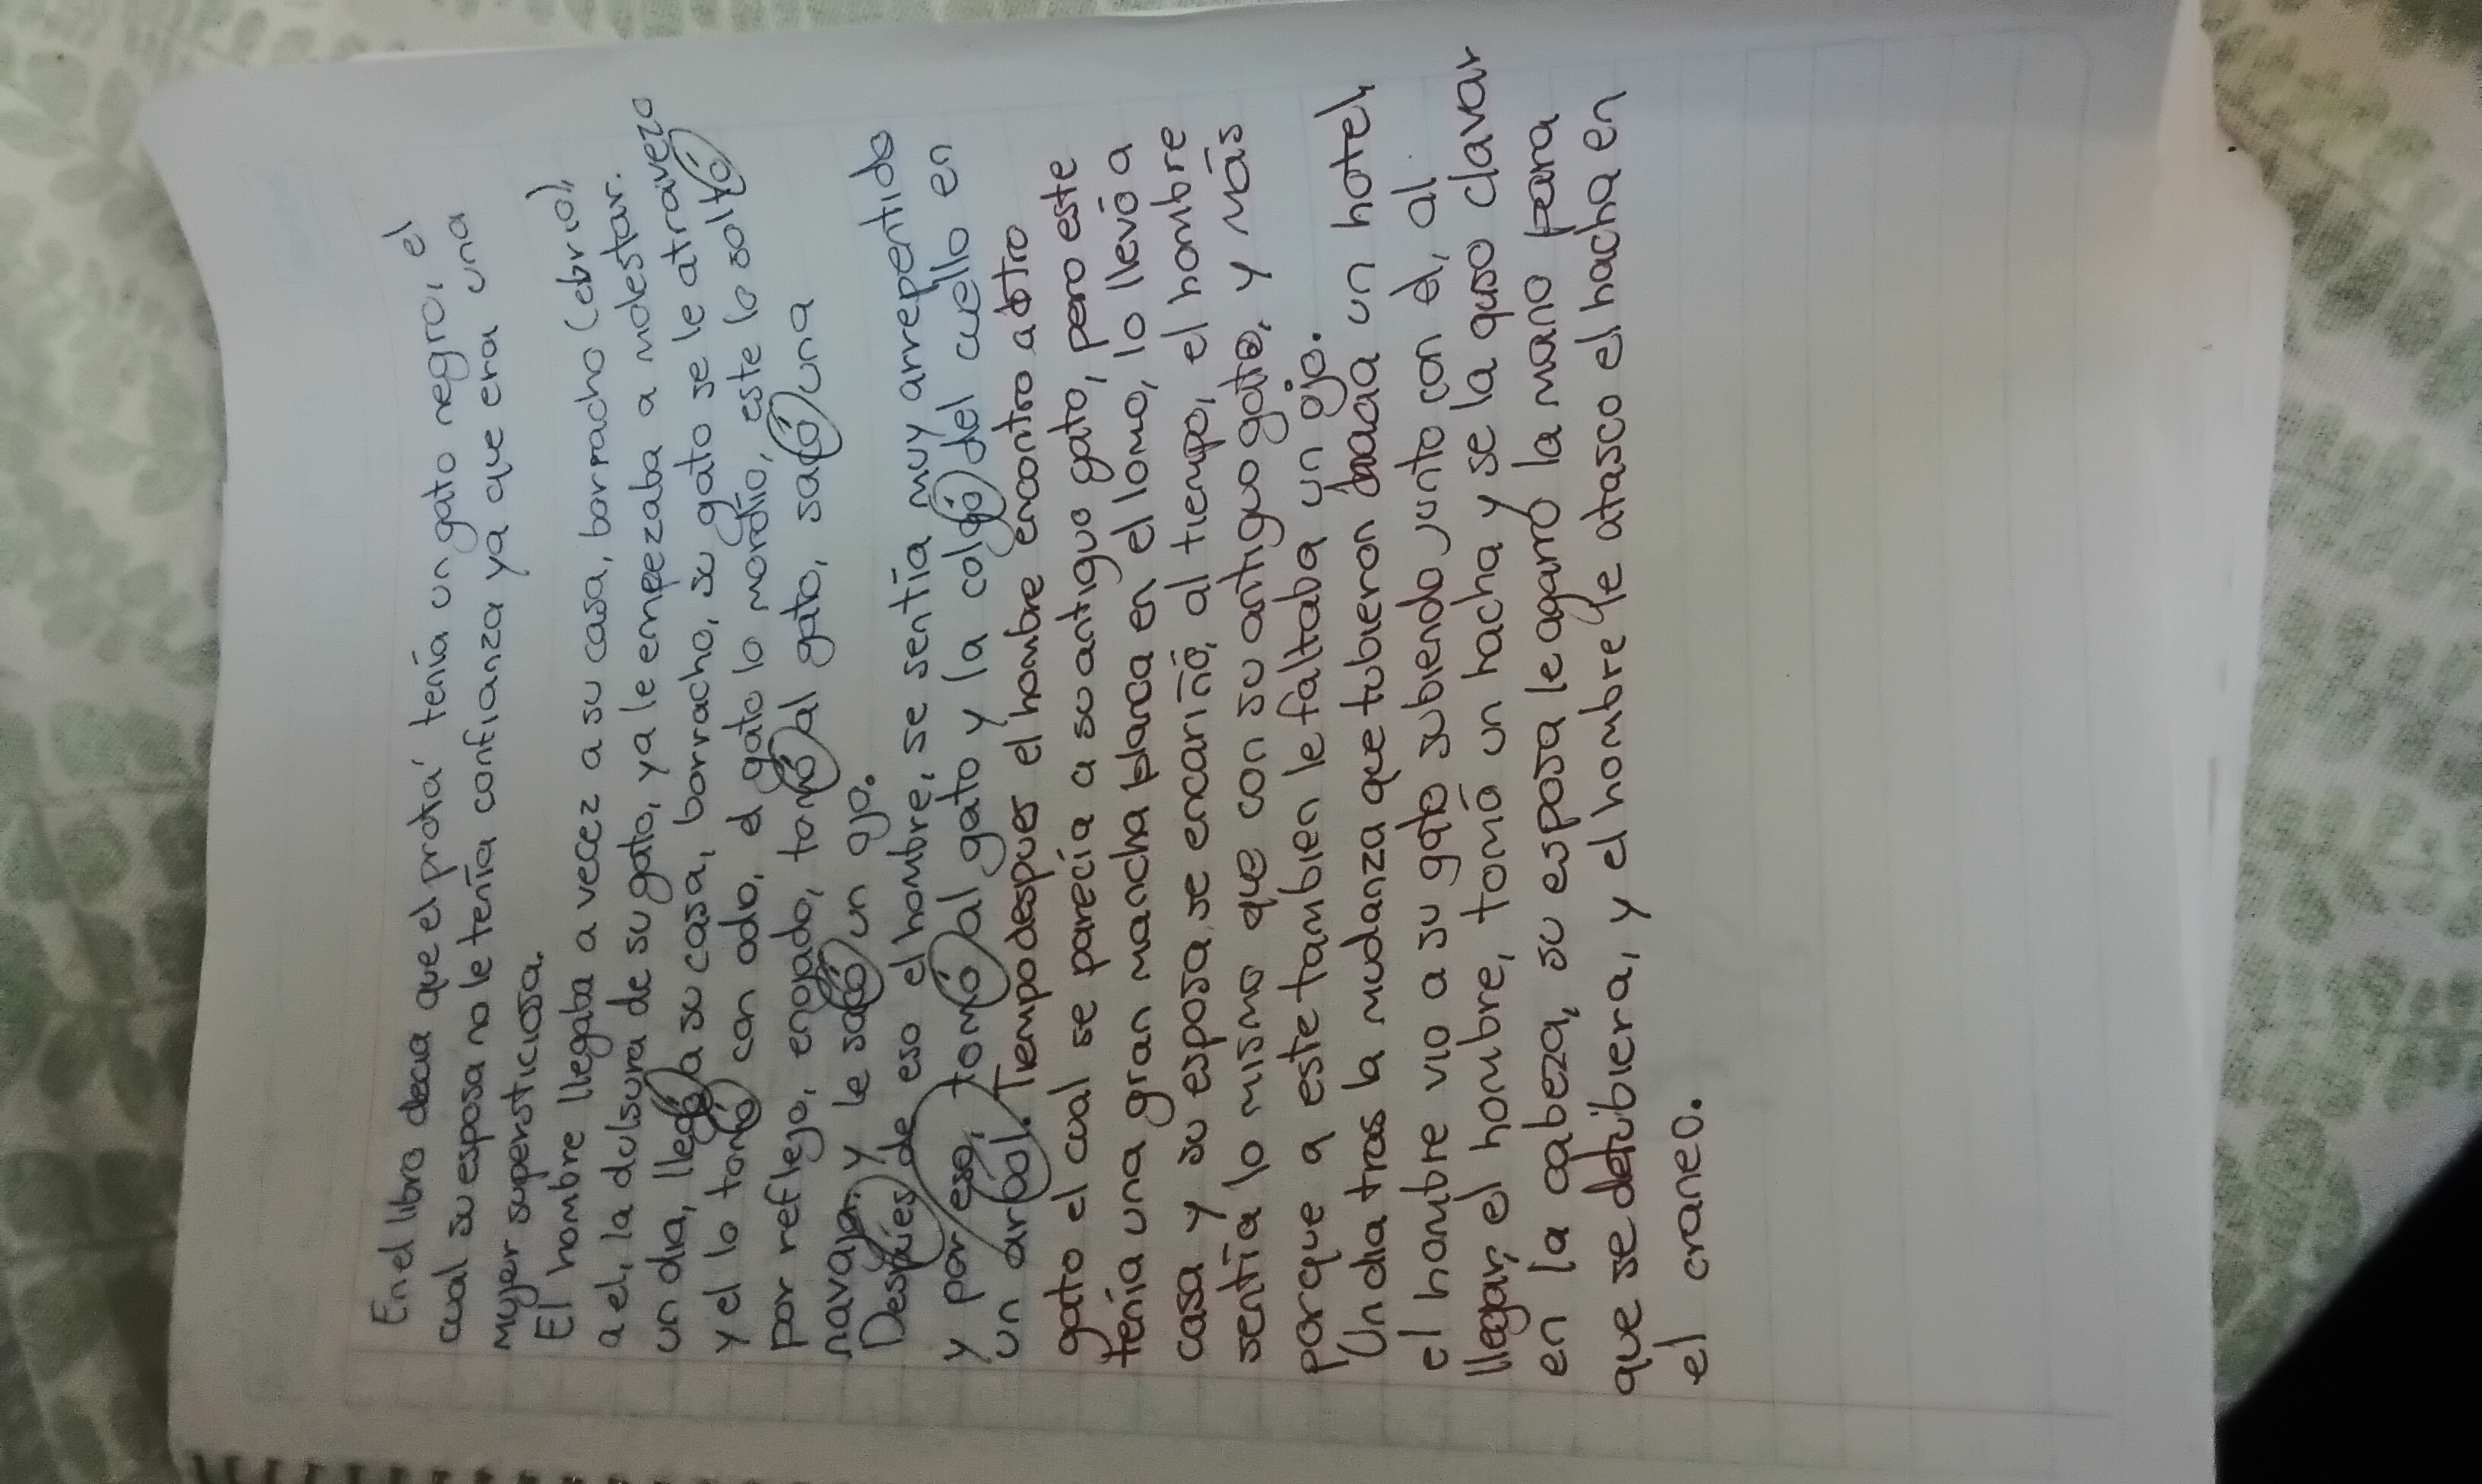 En el libro decia que el prota' tenía un gato negro, el
cual su esposa no le tenía confianza ya que era una
mujer supersticiosa.
El hombre llegaba a vecez a su casa, borracho (ebrio),
a el, la dulsura de su gato, ya le empezaba a molestar.
un dia, llegó a su casa, borracho, su gato se le atravezo
y el lo tomó con odio, el gato lo mordio, este lo soltó
por reflejo, enojado, tomó al gato, sacó una
navaja y le sacó un ojo.
Despúes de eso el hombre, se sentía muy arrepentido
y por eso, tomó al gato y la colgó del cuello en
un arbol. Tiempo despues el hombre encontro a otro
gato el cual se parecía a su antiguo gato, pero este
tenía una gran mancha blanca en el lomo, lo llevó a
casa y su esposa se encariñó, al tiempo, el hombre
sentía lo mismo que con su antiguo gato, y más
porque a este tambien le faltaba un ojo.
Un dia tras la mudanza que tubieron hacia un hotel,
el hombre vio a su gato subiendo junto con el, al
llegar, el hombre, tomó un hacha y se la quso clavar
en la cabeza, su esposa le agarró la mano para
que se detubiera, y el hombre le atasco el hacha en
el craneo.